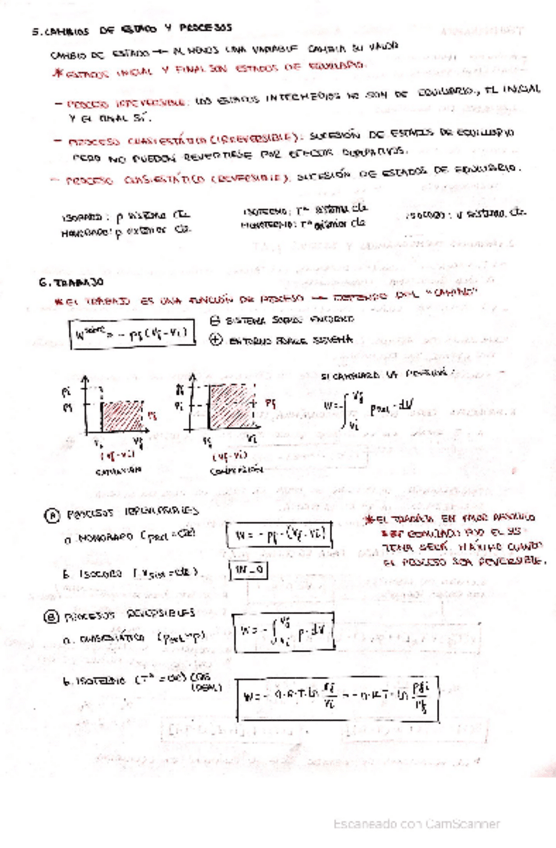 5. CAMBIOS DE ESTADO Y PROCESOS
CAMBIO DE ESTADO → AL MENOS UNA VARIABLE CAMBIA SU VALOR
* ESTADOS INICIAL Y FINAL SON ESTADOS DE EQUILIBRIO.
- PROCESO IRREVERSIBLE: LOS ESTADOS INTERMEDIOS NO SON DE EQUILIBRIO, EL INICIAL
Y EL FINAL SÍ.
- PROCESO CUASIESTÁTICO (IRREVERSIBLE): SUCESIÓN DE ESTADOS DE EQUILIBRIO
PERO NO PUEDEN REVERTIRSE POR EFECTOS DISIPATIVOS.
- PROCESO CUASIESTÁTICO (REVERSIBLE): SUCESIÓN DE ESTADOS DE EQUILIBRIO.
ISOBARO: p sistema cte
ISOTERMO: Tª sistema cte
ISOCORO: V sistema cte
MONOBARO: p exterior cte
MONOTERMO: Tª exterior cte
6. TRABAJO
* EL TRABAJO ES UNA FUNCIÓN DE PROCESO → DEPENDE DEL "CAMINO"
= - pf (Vf - Vi)
⊖ SISTEMA SOBRE ENTORNO
⊕ ENTORNO SOBRE SISTEMA
SI CAMBIARA LA PRESIÓN:
W = - ∫ Vf Vi pext · dV
pi
pf
pf
pi
pf
Vi Vf
Vf Vi
(Vf - Vi)
(Vf - Vi)
EXPANSIÓN
COMPRESIÓN
Ⓐ PROCESOS IRREVERSIBLES
a. MONOBARO (pext = cte)
W = - pf · (Vf - Vi)
b. ISOCORO (Vsist = cte)
W = 0
* EL TRABAJO EN VALOR ABSOLUTO
REALIZADO POR EL SIS-
TEMA SERÁ MÁXIMO CUANDO
EL PROCESO SEA REVERSIBLE.
Ⓑ PROCESOS REVERSIBLES
a. CUASIESTÁTICO (pext = p)
W = - ∫ Vf Vi p · dV
b. ISOTERMO (Tª = cte) (GAS
IDEAL)
W = - n·R·T·ln Vf/Vi = - n·R·T·ln pi/pf
Escaneado con CamScanner